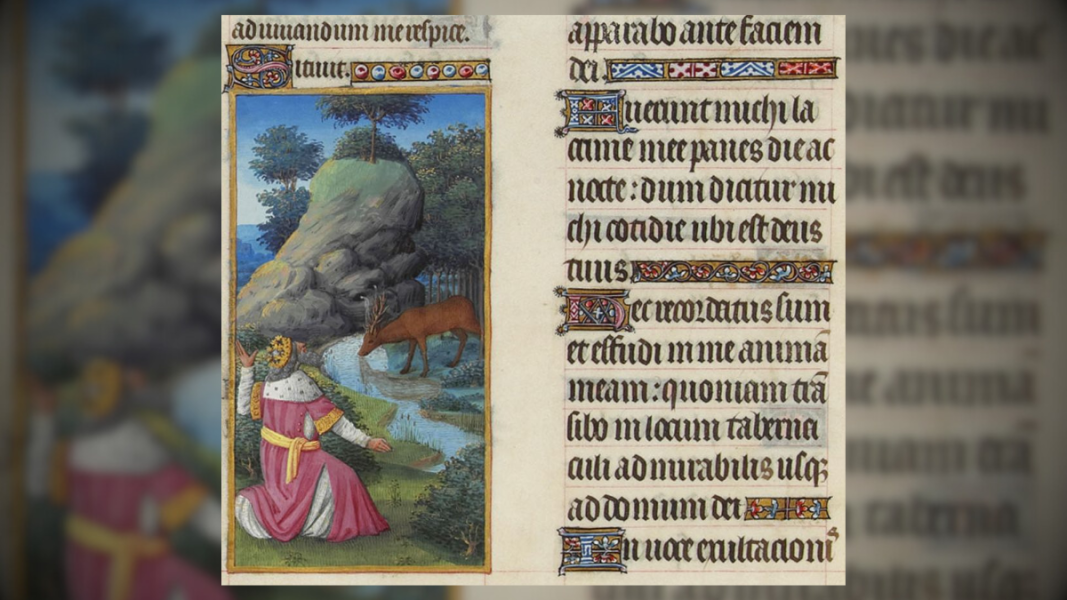 ad iuuandum me respice.
Sitiuit.
apparabo ante faciem
dei.
Fuerunt michi la
crime mee panes die ac
nocte: dum dicitur mi
chi cotidie ubi est deus
tuus
Hec recordatus sum
et effudi in me animā
meam: quoniam trā
sibo in locum taberna
culi admirabilis usqꝫ
ad domum dei
In uoce exultacionis